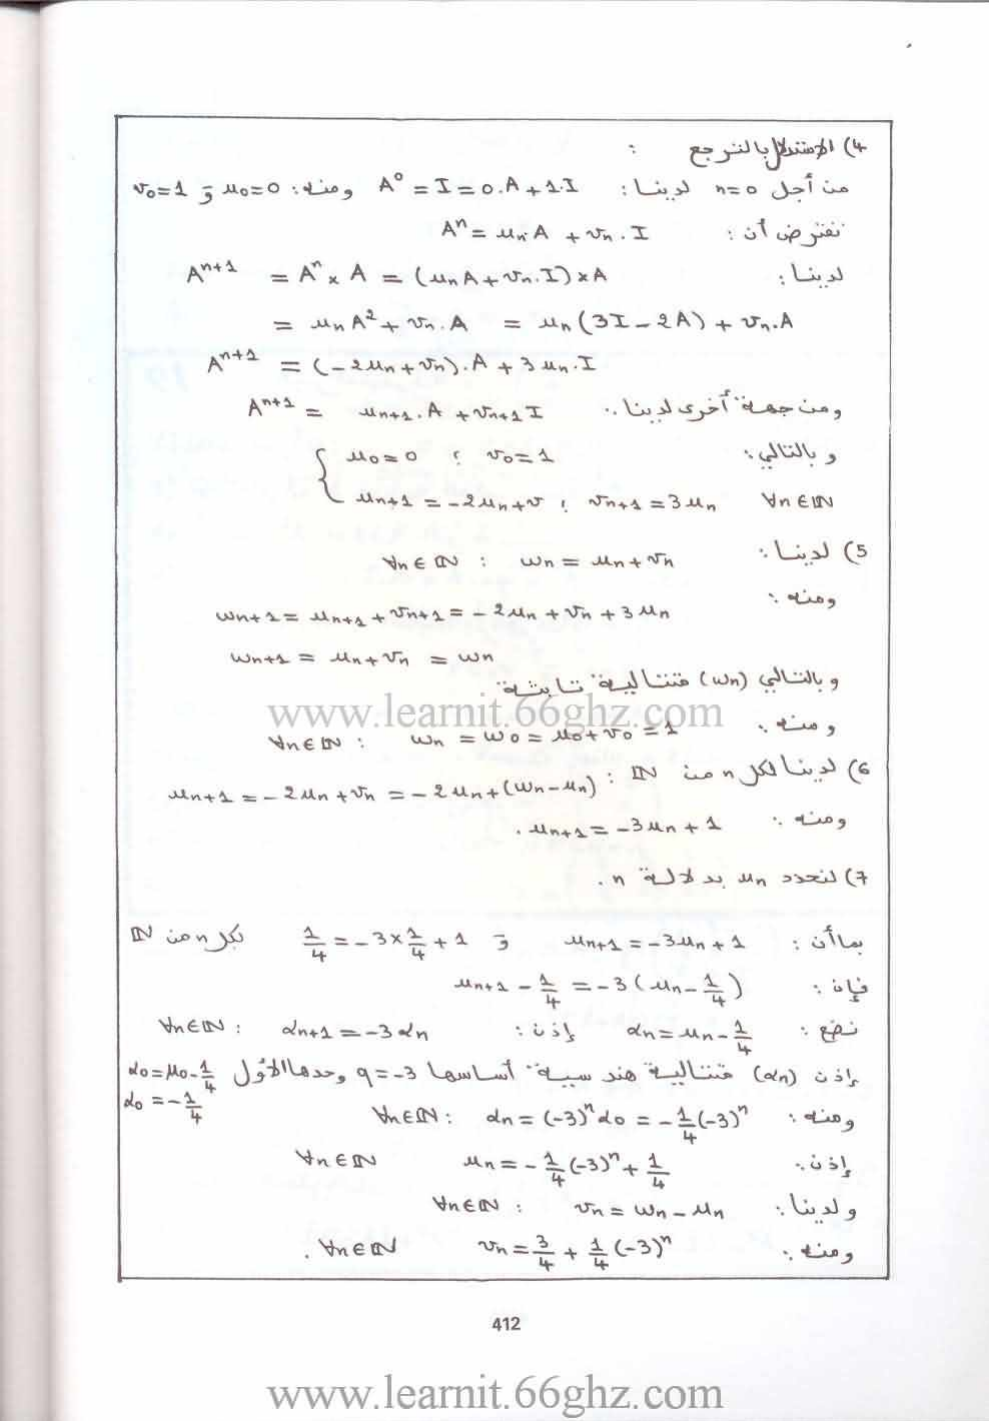 4) الاستدلال بالترجع :
من أجل n=0 لدينا : A⁰ = I = 0.A + 1.I ومنه : u₀=0 و v₀=1
نفترض أن : Aⁿ = uₙ.A + vₙ.I
لدينا : Aⁿ⁺¹ = Aⁿ × A = (uₙA + vₙ.I) × A
= uₙA² + vₙ.A = uₙ(3I - 2A) + vₙ.A
Aⁿ⁺¹ = (-2uₙ + vₙ).A + 3uₙ.I
ومن جهة أخرى لدينا : Aⁿ⁺¹ = uₙ₊₁.A + vₙ₊₁I
وبالتالي : { u₀=0 ; v₀=1
uₙ₊₁ = -2uₙ+v ; vₙ₊₁ = 3uₙ ∀n∈ℕ
5) لدينا : ∀n∈ℕ : wₙ = uₙ + vₙ
ومنه :
wₙ₊₁ = uₙ₊₁ + vₙ₊₁ = -2uₙ + vₙ + 3uₙ
wₙ₊₁ = uₙ + vₙ = wₙ
وبالتالي (wₙ) متتالية ثابتة .
www.learnit.66ghz.com
ومنه : ∀n∈ℕ : wₙ = w₀ = u₀ + v₀ = 1
6) لدينا لكل n من ℕ : uₙ₊₁ = -2uₙ + vₙ = -2uₙ + (wₙ - uₙ)
ومنه : uₙ₊₁ = -3uₙ + 1 .
7) لنحدد uₙ بدلالة n .
بما أن : uₙ₊₁ = -3uₙ + 1 و 1/4 = -3×1/4 + 1 لكل n من ℕ
فإن : uₙ₊₁ - 1/4 = -3(uₙ - 1/4)
نضع : αₙ = uₙ - 1/4 إذن : αₙ₊₁ = -3αₙ ∀n∈ℕ :
إذن (αₙ) متتالية هندسية أساسها q=-3 وحدها الأول α₀ = u₀ - 1/4
α₀ = -1/4
ومنه : ∀n∈ℕ : αₙ = (-3)ⁿα₀ = -1/4(-3)ⁿ
إذن : uₙ = -1/4(-3)ⁿ + 1/4 ∀n∈ℕ
ولدينا : ∀n∈ℕ : vₙ = wₙ - uₙ
ومنه : vₙ = 3/4 + 1/4(-3)ⁿ ∀n∈ℕ .
412
www.learnit.66ghz.com